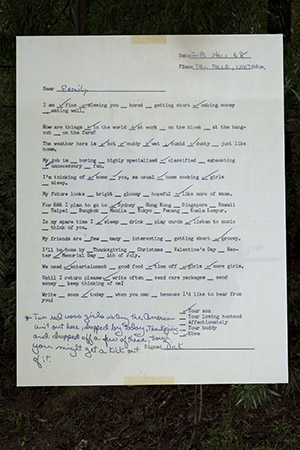 Date 28 Nov. 68
Place Tri Tolo, Vietnam
Dear Family
I am ✓ fine missing you bored getting short ✓ making money
eating well.
How are things ✓ in the world at work on the block at the hang-
out on the farm?
The weather here is ✓ hot muddy wet humid dusty just like
home.
My job is boring highly specialized ✓ classified exhausting
unnecessary fun.
I'm thinking of home ✓ you, as usual home cooking girls
sleep.
My future looks bright gloomy hopeful like more of same.
For R&R I plan to go to Sydney Hong Kong Singapore Hawaii
Taipei Bangkok Manila Tokyo Penang Kuala Lumpur.
In my spare time I sleep drink play cards listen to music
think of you.
My friends are few many interesting getting short groovy.
I'll be home by Thanksgiving Christmas Valentine's Day Eas-
ter Memorial Day 4th of July.
We need entertainment good food time off girls more girls.
Until I return please write often send care packages send
money keep thinking of me!
Write soon today when you can because I'd like to hear from
you!
Your son
Your loving husband
Affectionately
Your buddy
Love
Signed Dick
* Two red cross girls visiting the Americ-
ans out here stopped by today, Thanksgiving
and dropped off a few of these. Thought
you might get a kick out
of it.